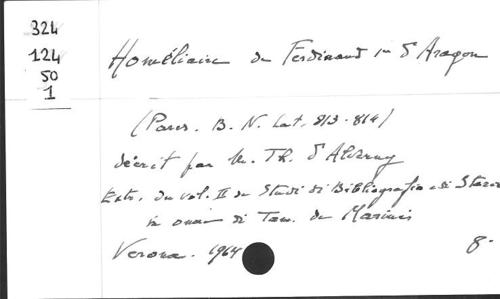 324
124
50
1
Homéliaire de Ferdinand Ier d'Aragon
(Paris. B. N. Lat. 813-814)
décrit par M. Th. d'Alverny
Extr. du vol. II de Studi di Bibliografia e di Storia
in onore di Tam. de Marinis
Verona. 1964
8.